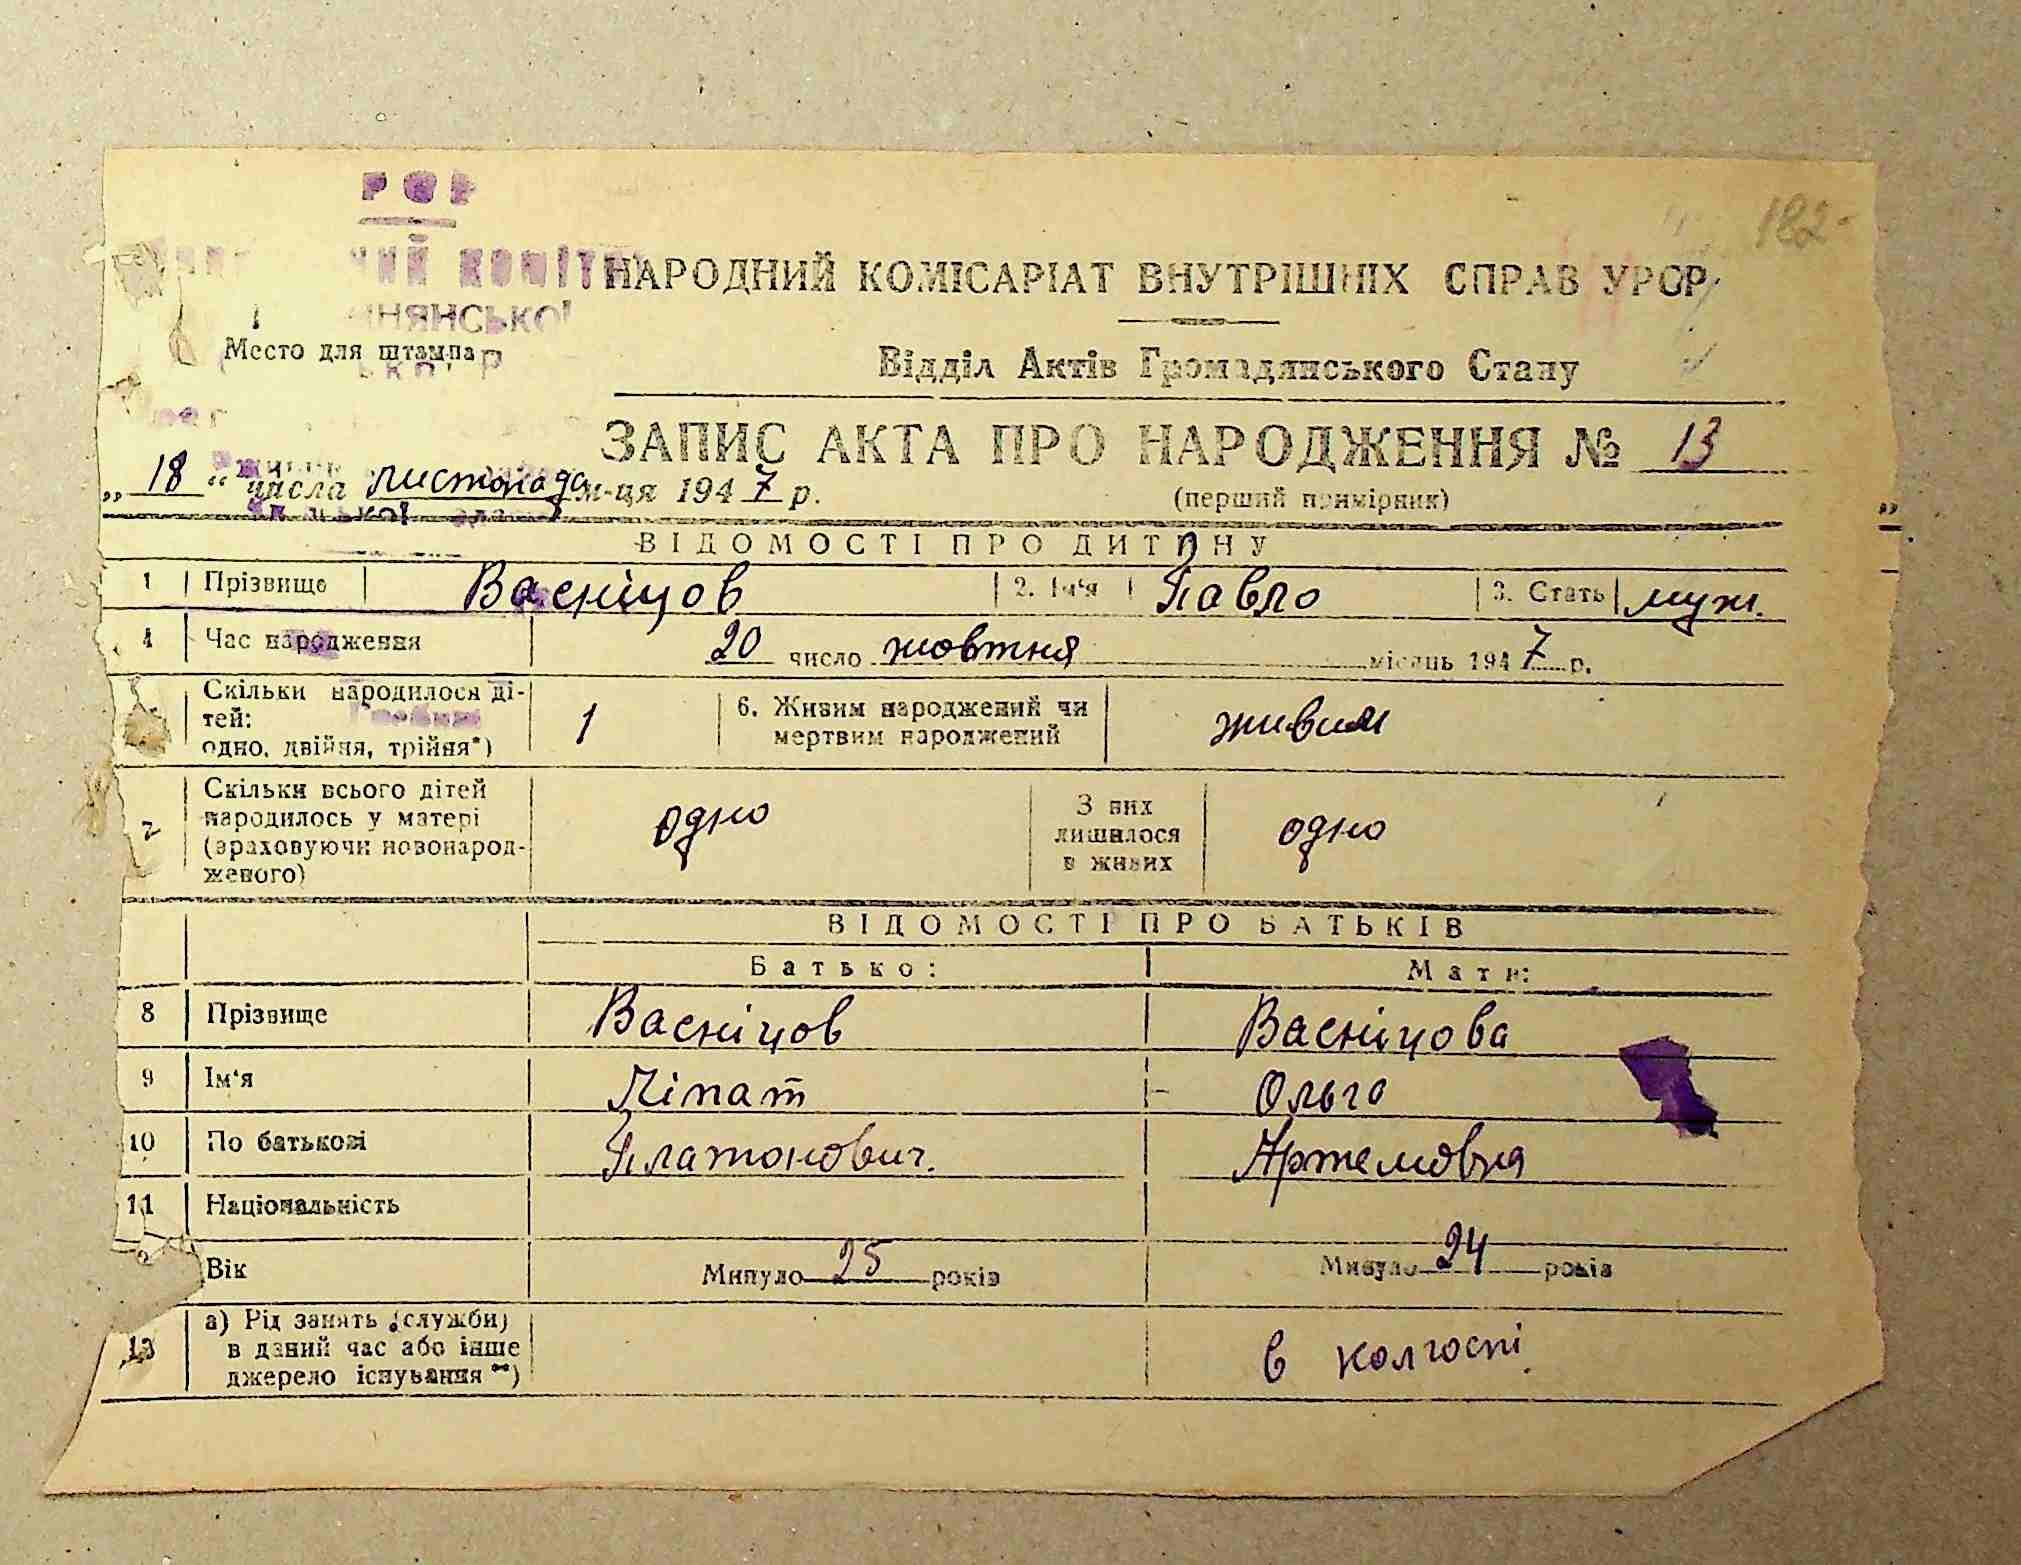 182
НАРОДНИЙ КОМІСАРІАТ ВНУТРІШНІХ СПРАВ УРСР
Место для штампа
Відділ Актів Громадянського Стану
ЗАПИС АКТА ПРО НАРОДЖЕННЯ № 13
„ 18 “ числа листопада м-ця 1947 р.
(перший примірник)
ВІДОМОСТІ ПРО ДИТИНУ
1 Прізвище Васніцов 2. Ім‘я Павло 3. Стать муж.
4 Час народження 20 число жовтня місяць 1947 р.
Скільки народилося ді-
тей:
одно, двійня, трійня*) 1 6. Живим народжений чи
мертвим народжений живим
7 Скільки всього дітей
народилось у матері
(враховуючи новонарод-
женого) одно З них
лишилося
в живих одно
ВІДОМОСТІ ПРО БАТЬКІВ
Батько: Мати:
8 Прізвище Васніцов Васніцова
9 Ім‘я Ліпат Ольга
10 По батькові Платонович. Артемовна
11 Національність
Вік Минуло 25 років Минуло 24 років
13 а) Рід занять (служби)
в даний час або інше
джерело існування **) в колгоспі.